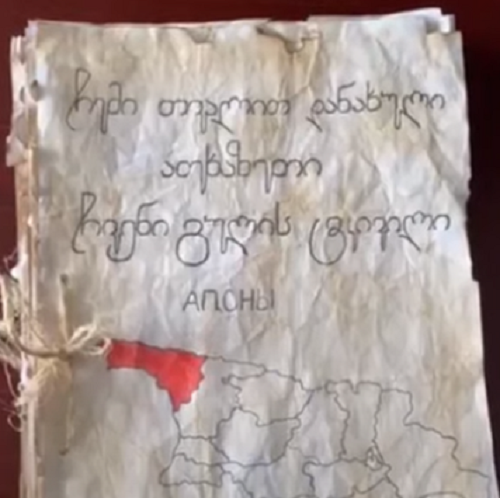 ჩემი თვალით დანახული
აფხაზეთი
ჩვენი გულის ტკივილი
АԤСНЫ